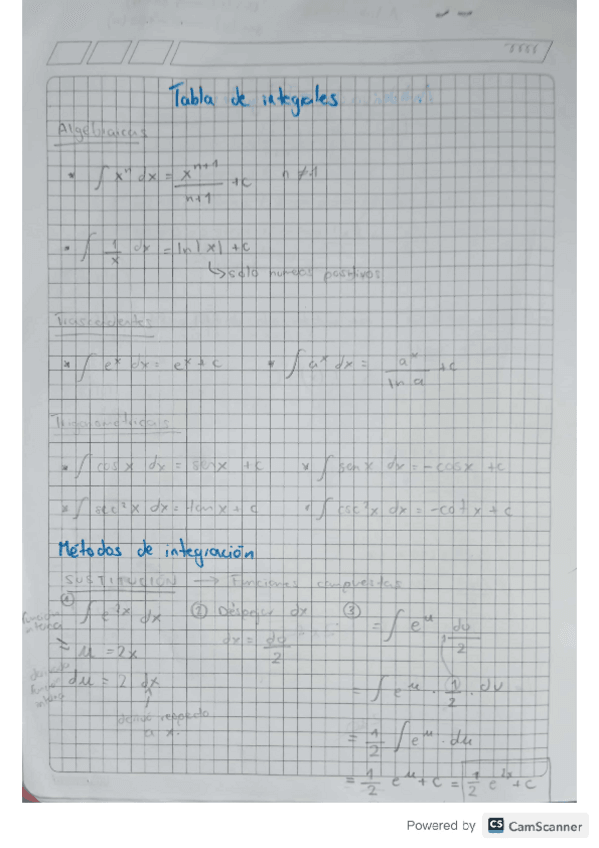 Tabla de integrales
Algebraicas
* ∫ xⁿ dx = xⁿ⁺¹/n+1 + c    n ≠ -1
* ∫ 1/x dx = ln|x| + c
↳ solo numeros positivos
Trascendentes
* ∫ eˣ dx = eˣ + c    * ∫ aˣ dx = aˣ/ln a + c
Trigonometricas
* ∫ cos x dx = sen x + c    * ∫ sen x dx = -cos x + c
* ∫ sec² x dx = tan x + c    * ∫ csc² x dx = -cot x + c
Métodos de integración
SUSTITUCION → Funciones compuestas
① ∫ e²ˣ dx    ② Despejar dx    ③ = ∫ eᵘ du/2
función interna
u = 2x    dx = du/2
derivada función interna
du = 2 dx    = ∫ eᵘ · 1/2 · du
derivo respecto a x.
= 1/2 ∫ eᵘ · du
= 1/2 eᵘ + c = 1/2 e²ˣ + c
Powered by CS CamScanner